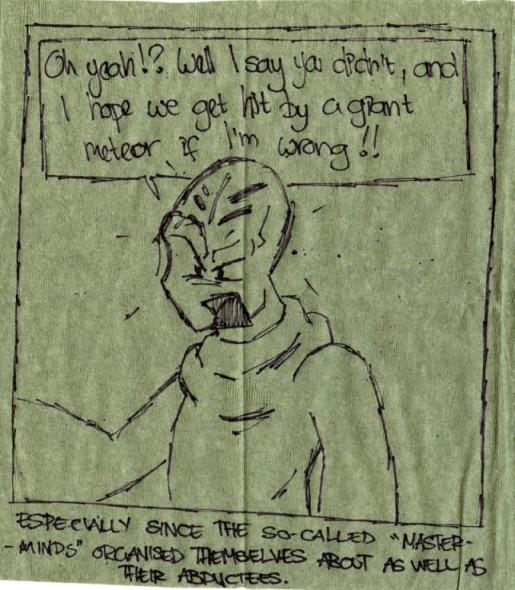 Oh yeah!? Well I say you didn't, and
I hope we get hit by a giant
meteor if I'm wrong!!
ESPECIALLY SINCE THE SO-CALLED "MASTER-
-MINDS" ORGANISED THEMSELVES ABOUT AS WELL AS
THEIR ABDUCTEES.